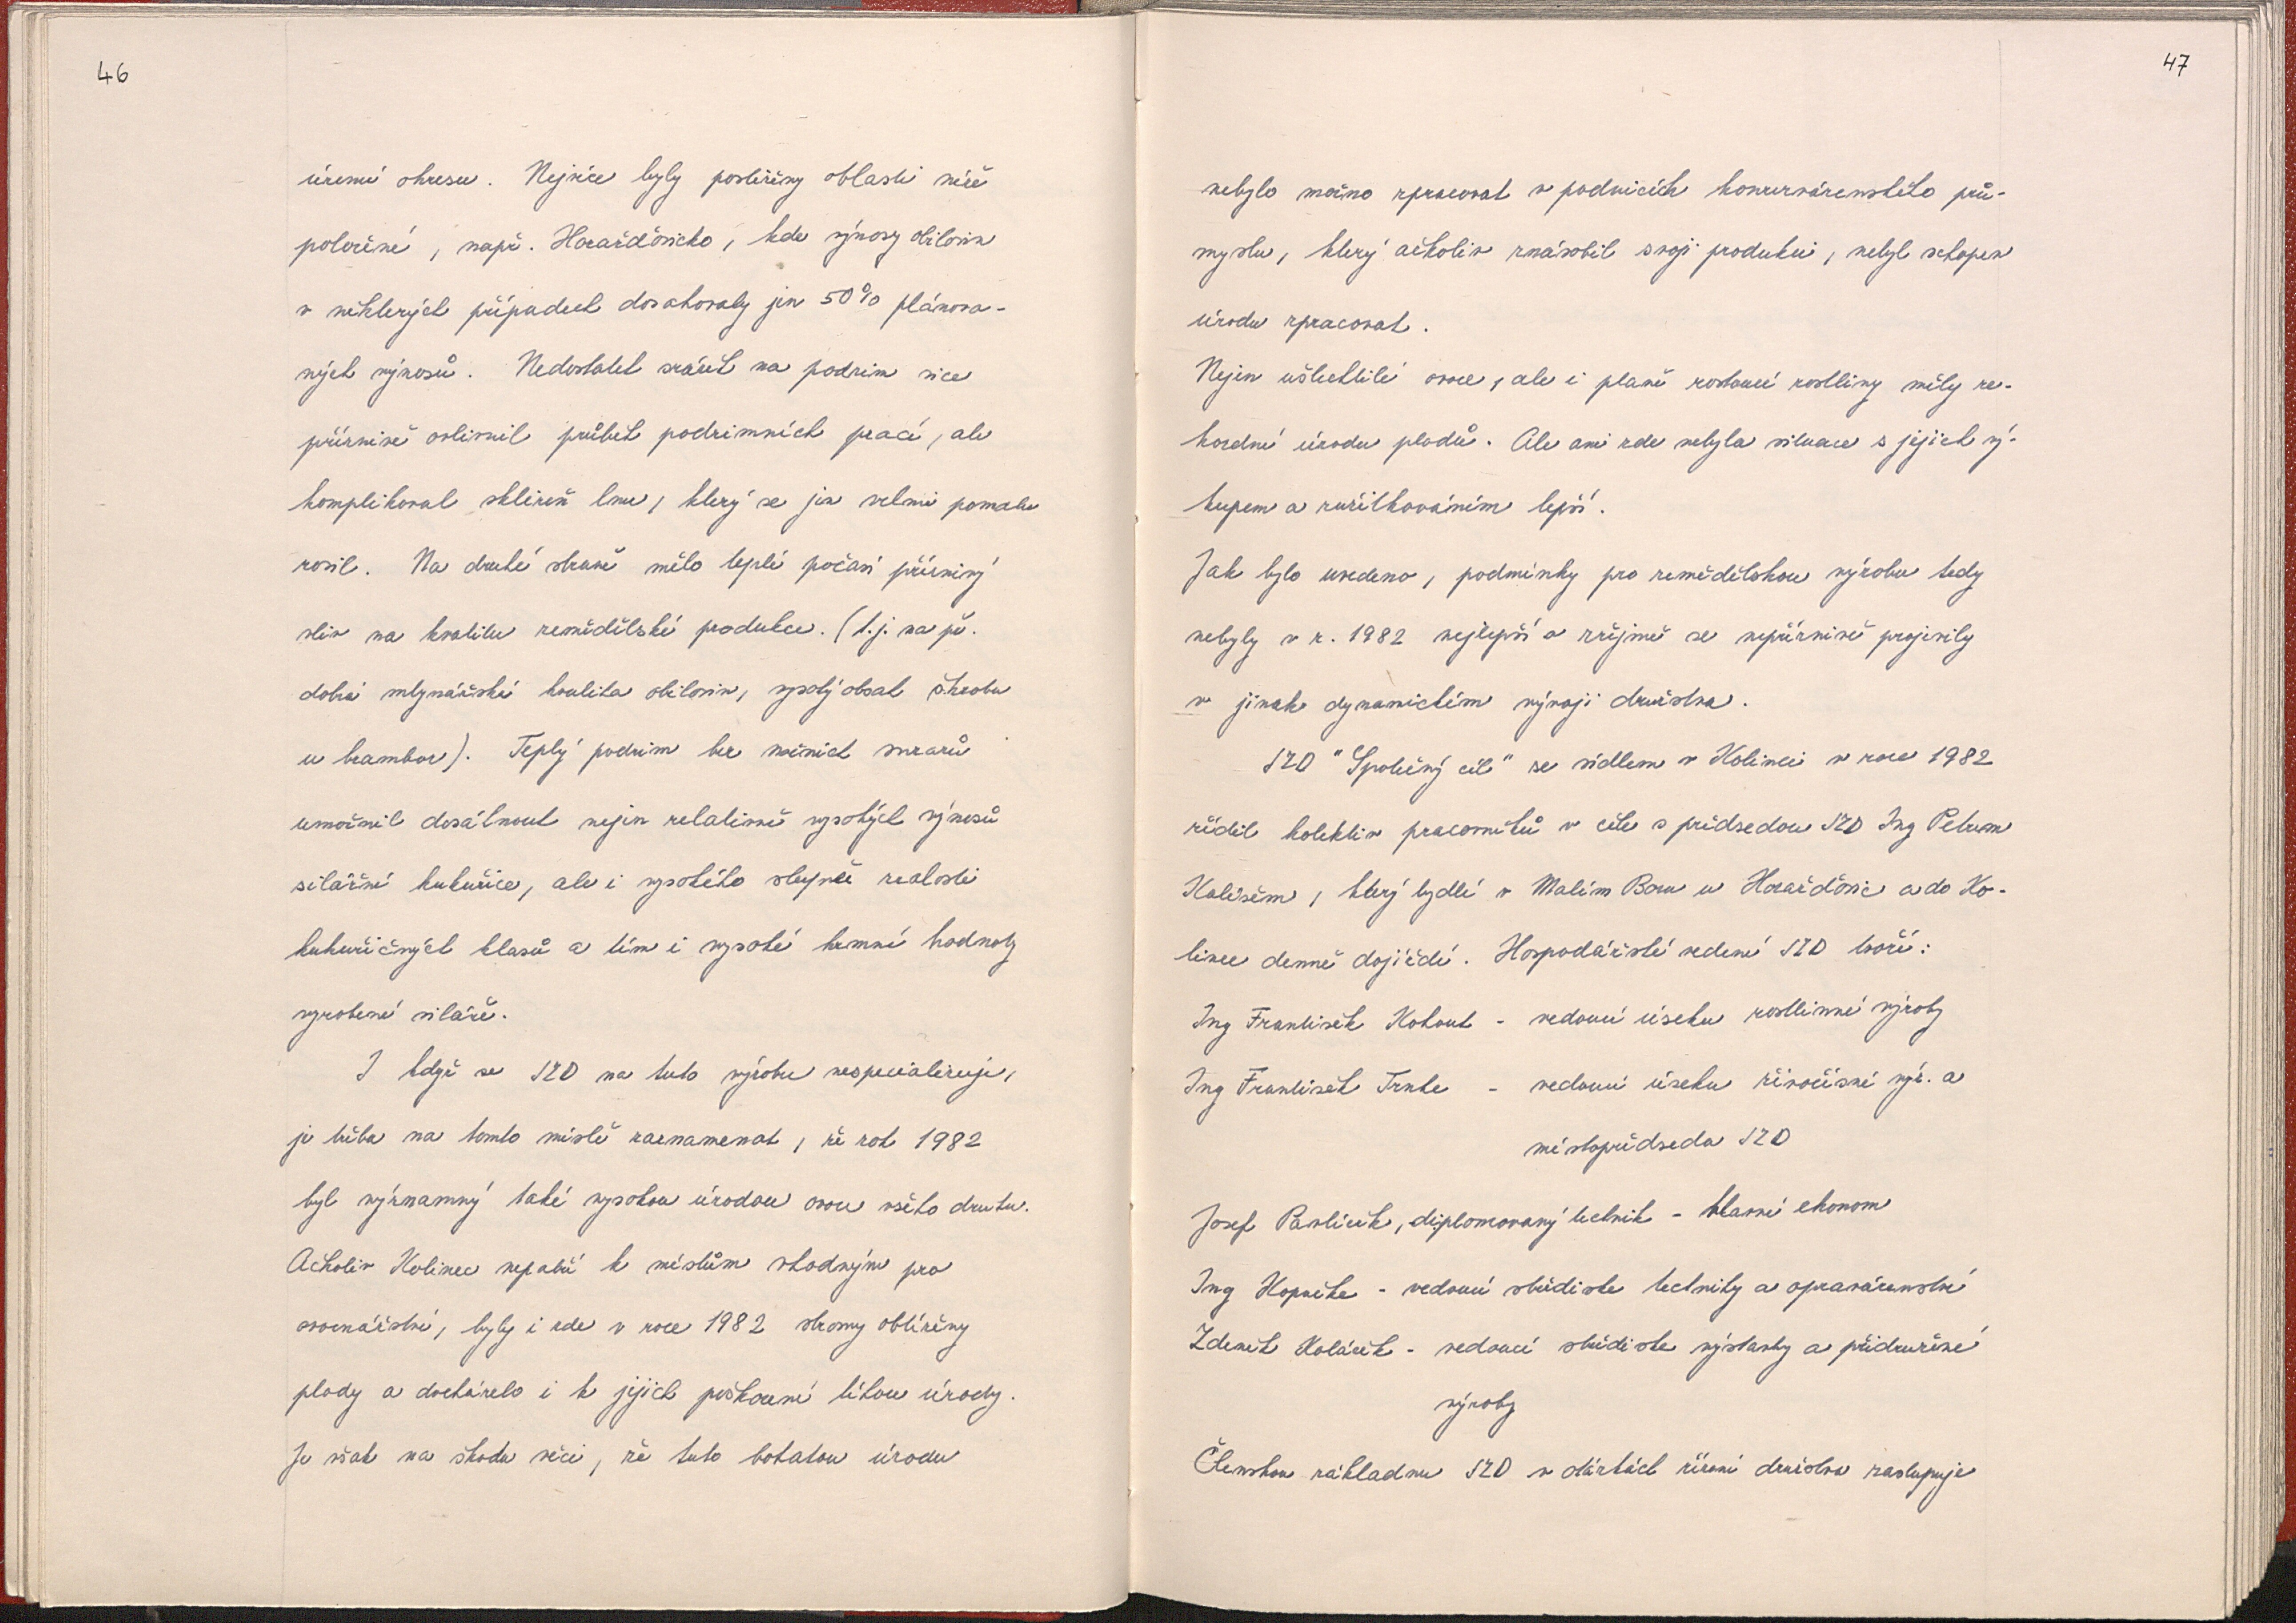 46
území okresu. Nejvíce byly postiženy oblasti níže
položené, např. Horažďovicko, kde výnosy obilovin
v některých případech dosahovaly jen 50% plánova-
ných výnosů. Nedostatek srážek na podzim sice
příznivě ovlivnil průběh podzimních prací, ale
komplikoval sklizeň lnu, který se jen velmi pomalu
rosil. Na druhé straně mělo teplé počasí příznivý
vliv na kvalitu zemědělské produkce. (t.j. na př.
dobrá mlynářská kvalita obilovin, vysoký obsah škrobu
u brambor). Teplý podzim bez nočních mrazů
umožnil dosáhnout nejen relativně vysokých výnosů
silážní kukuřice, ale i vysokého stupně zralosti
kukuřičných klasů a tím i vysoké krmné hodnoty
vyrobené siláže.
I když se JZD na tuto výrobu nespecializuje,
je třeba na tomto místě zaznamenat, že rok 1982
byl významný také vysokou úrodou ovoce všeho druhu.
Ačkoliv Kolinec nepatří k místům vhodným pro
ovocnářství, byly i zde v roce 1982 stromy obtíženy
plody a docházelo i k jejich poškození tíhou úrody.
Je však na škodu věci, že tuto bohatou úrodu
47
nebylo možno zpracovat v podnicích konzervárenského prů-
myslu, který ačkoliv znásobil svoji produkci, nebyl schopen
úrodu zpracovat.
Nejen ušlechtilé ovoce, ale i planě rostoucí rostliny měly re-
kordní úrodu plodů. Ale ani zde nebyla situace s jejich vý-
kupem a zužitkováním lepší.
Jak bylo uvedeno, podmínky pro zemědělskou výrobu tedy
nebyly v r. 1982 nejlepší a zřejmě se nepříznivě projevily
v jinak dynamickém vývoji družstva.
JZD "Společný cíl" se sídlem v Kolinci v roce 1982
řídil kolektiv pracovníků v čele s předsedou JZD Ing Petrem
Kališem, který bydlí v Malém Boru u Horažďovic a do Ko-
lince denně dojíždí. Hospodářské vedení JZD tvoří:
Ing František Kohout - vedoucí úseku rostlinné výroby
Ing František Trnka - vedoucí úseku živočišné výr. a
místopředseda JZD
Josef Pavlíček, diplomovaný technik - hlavní ekonom
Ing Kopečka - vedoucí střediska techniky a opravárenství
Zdeněk Koláček - vedoucí střediska výstavby a přidružené
výroby
Členskou základnu JZD v otázkách řízení družstva zastupuje